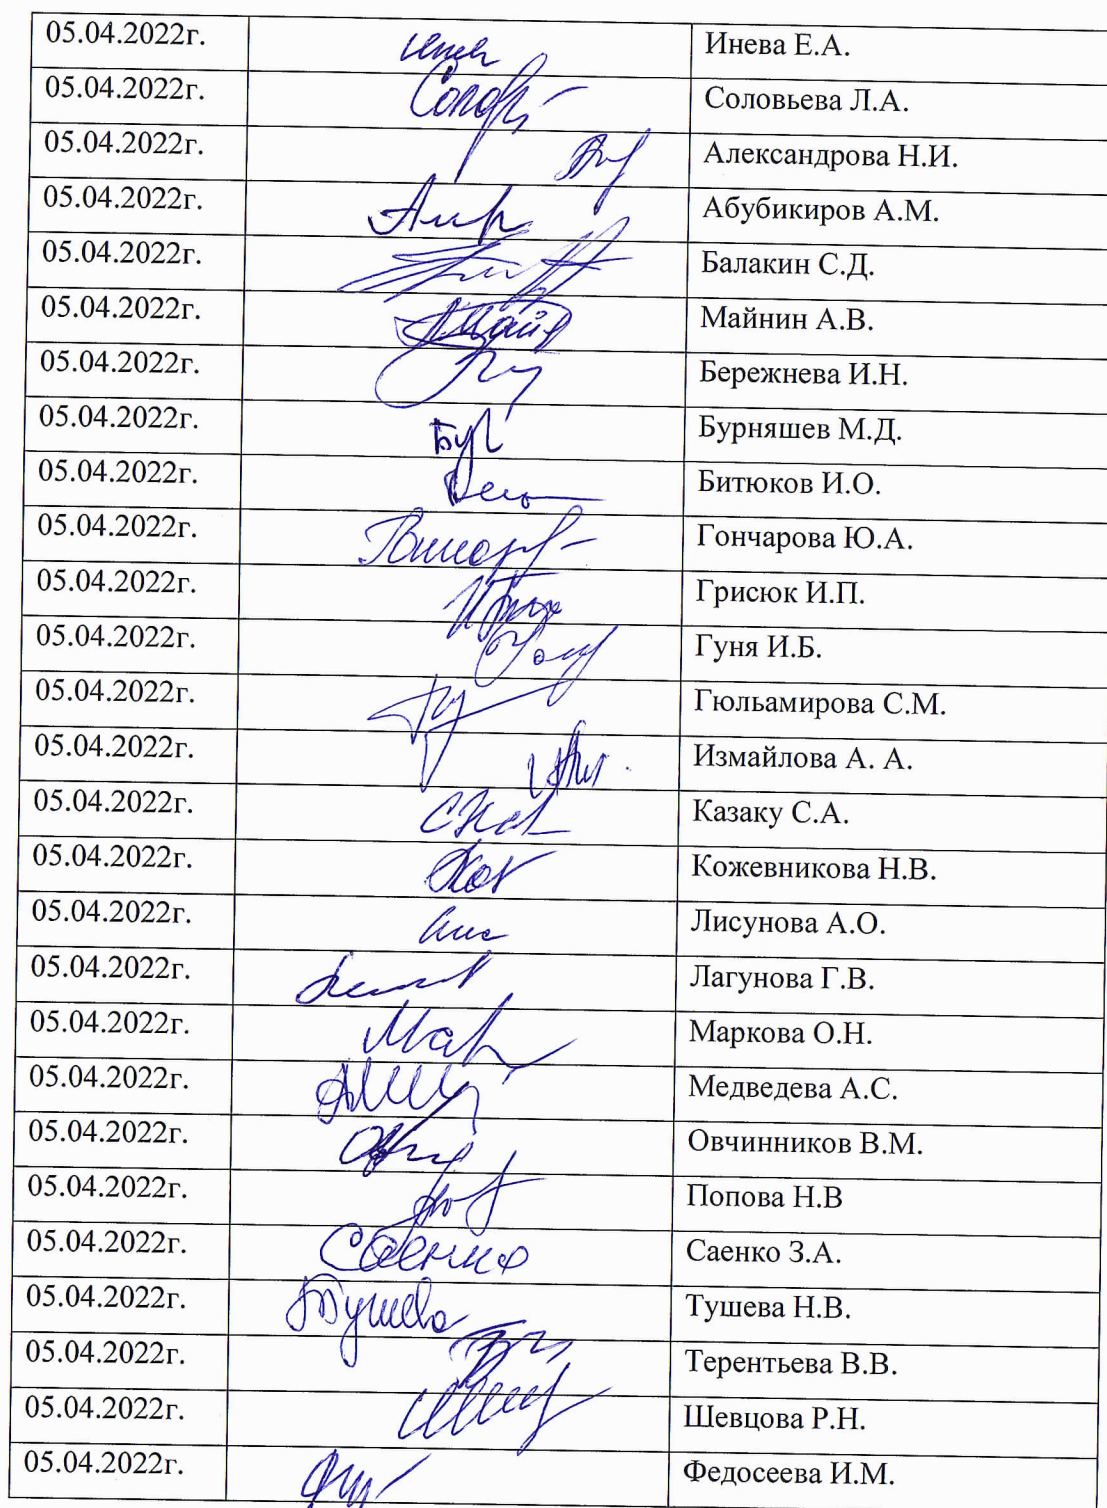 05.04.2022г. Инева Е.А.
05.04.2022г. Соловьева Л.А.
05.04.2022г. Александрова Н.И.
05.04.2022г. Абубикиров А.М.
05.04.2022г. Балакин С.Д.
05.04.2022г. Майнин А.В.
05.04.2022г. Бережнева И.Н.
05.04.2022г. Бурняшев М.Д.
05.04.2022г. Битюков И.О.
05.04.2022г. Гончарова Ю.А.
05.04.2022г. Грисюк И.П.
05.04.2022г. Гуня И.Б.
05.04.2022г. Гюльамирова С.М.
05.04.2022г. Измайлова А. А.
05.04.2022г. Казаку С.А.
05.04.2022г. Кожевникова Н.В.
05.04.2022г. Лисунова А.О.
05.04.2022г. Лагунова Г.В.
05.04.2022г. Маркова О.Н.
05.04.2022г. Медведева А.С.
05.04.2022г. Овчинников В.М.
05.04.2022г. Попова Н.В
05.04.2022г. Саенко Саенко З.А.
05.04.2022г. Тушева Тушева Н.В.
05.04.2022г. Терентьева В.В.
05.04.2022г. Шевцова Р.Н.
05.04.2022г. Федосеева И.М.